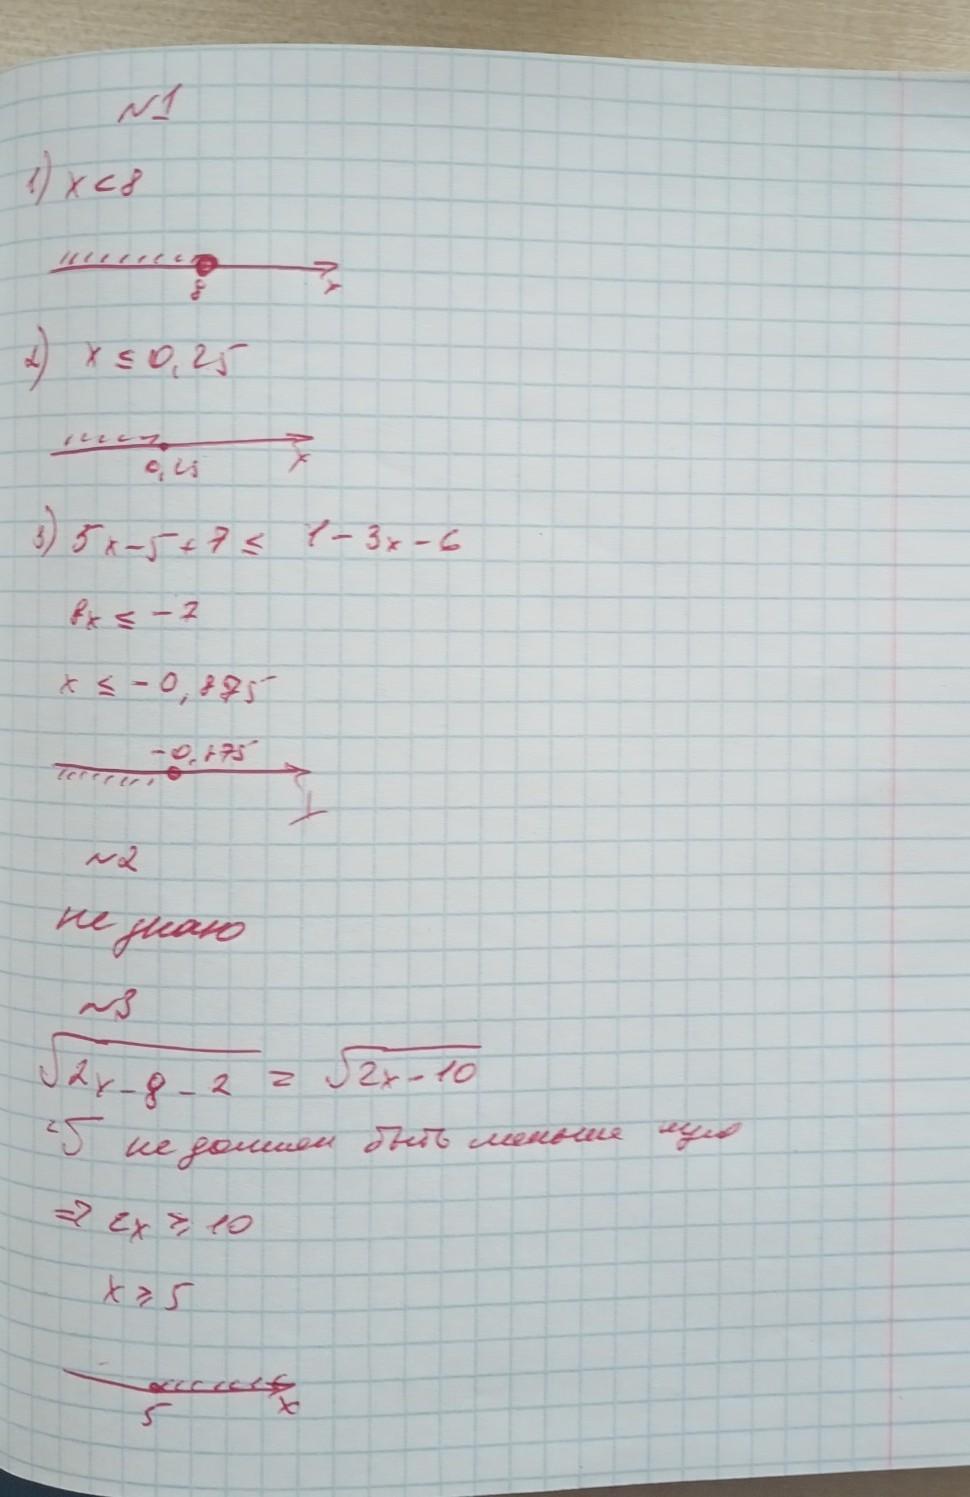 №1
1) x < 8
8 x
2) x ≤ 0,25
0,25 x
3) 5x - 5 + 7 ≤ 1 - 3x - 6
8x ≤ -7
x ≤ -0,875
-0,875
№2
не знаю
№3
√2x - 8 - 2 = √2x - 10
√ не должен быть меньше нуля
=> 2x ≥ 10
x ≥ 5
5 x